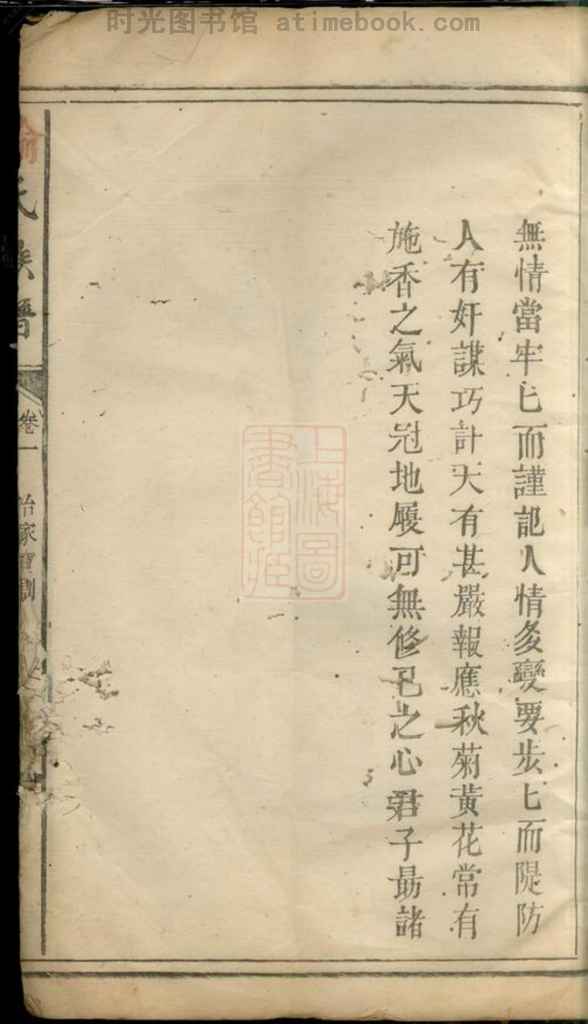 时光图书馆 atimebook.com
無情當牢匕而謹記人情多變要步匕而隄防
人有奸謀巧計天有甚嚴報應秋菊黃花常有
施香之氣天冠地履可無修己之心君子勗諸
上海圖書館藏
氏族譜
卷一
治家寶訓